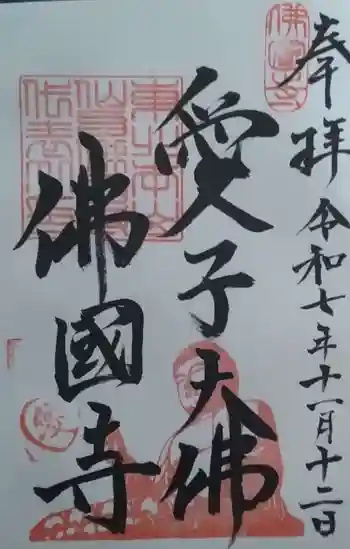 奉拝 令和七年十一月十二日
愛子大佛
佛國寺